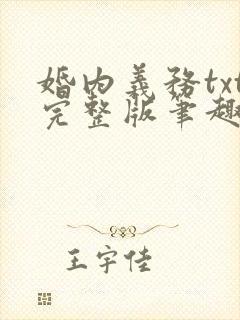 婚内義務txt
完整版筆趣
王宇佳